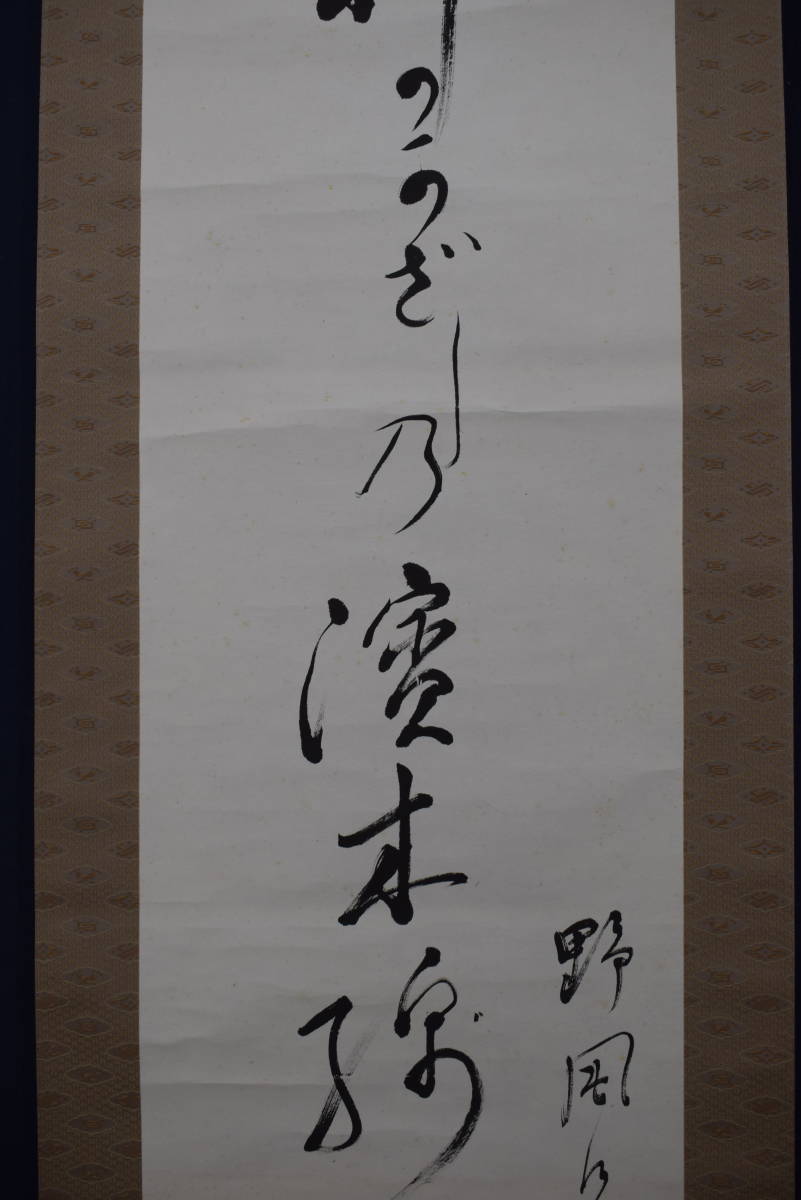 のかざし乃濱木綿
野風